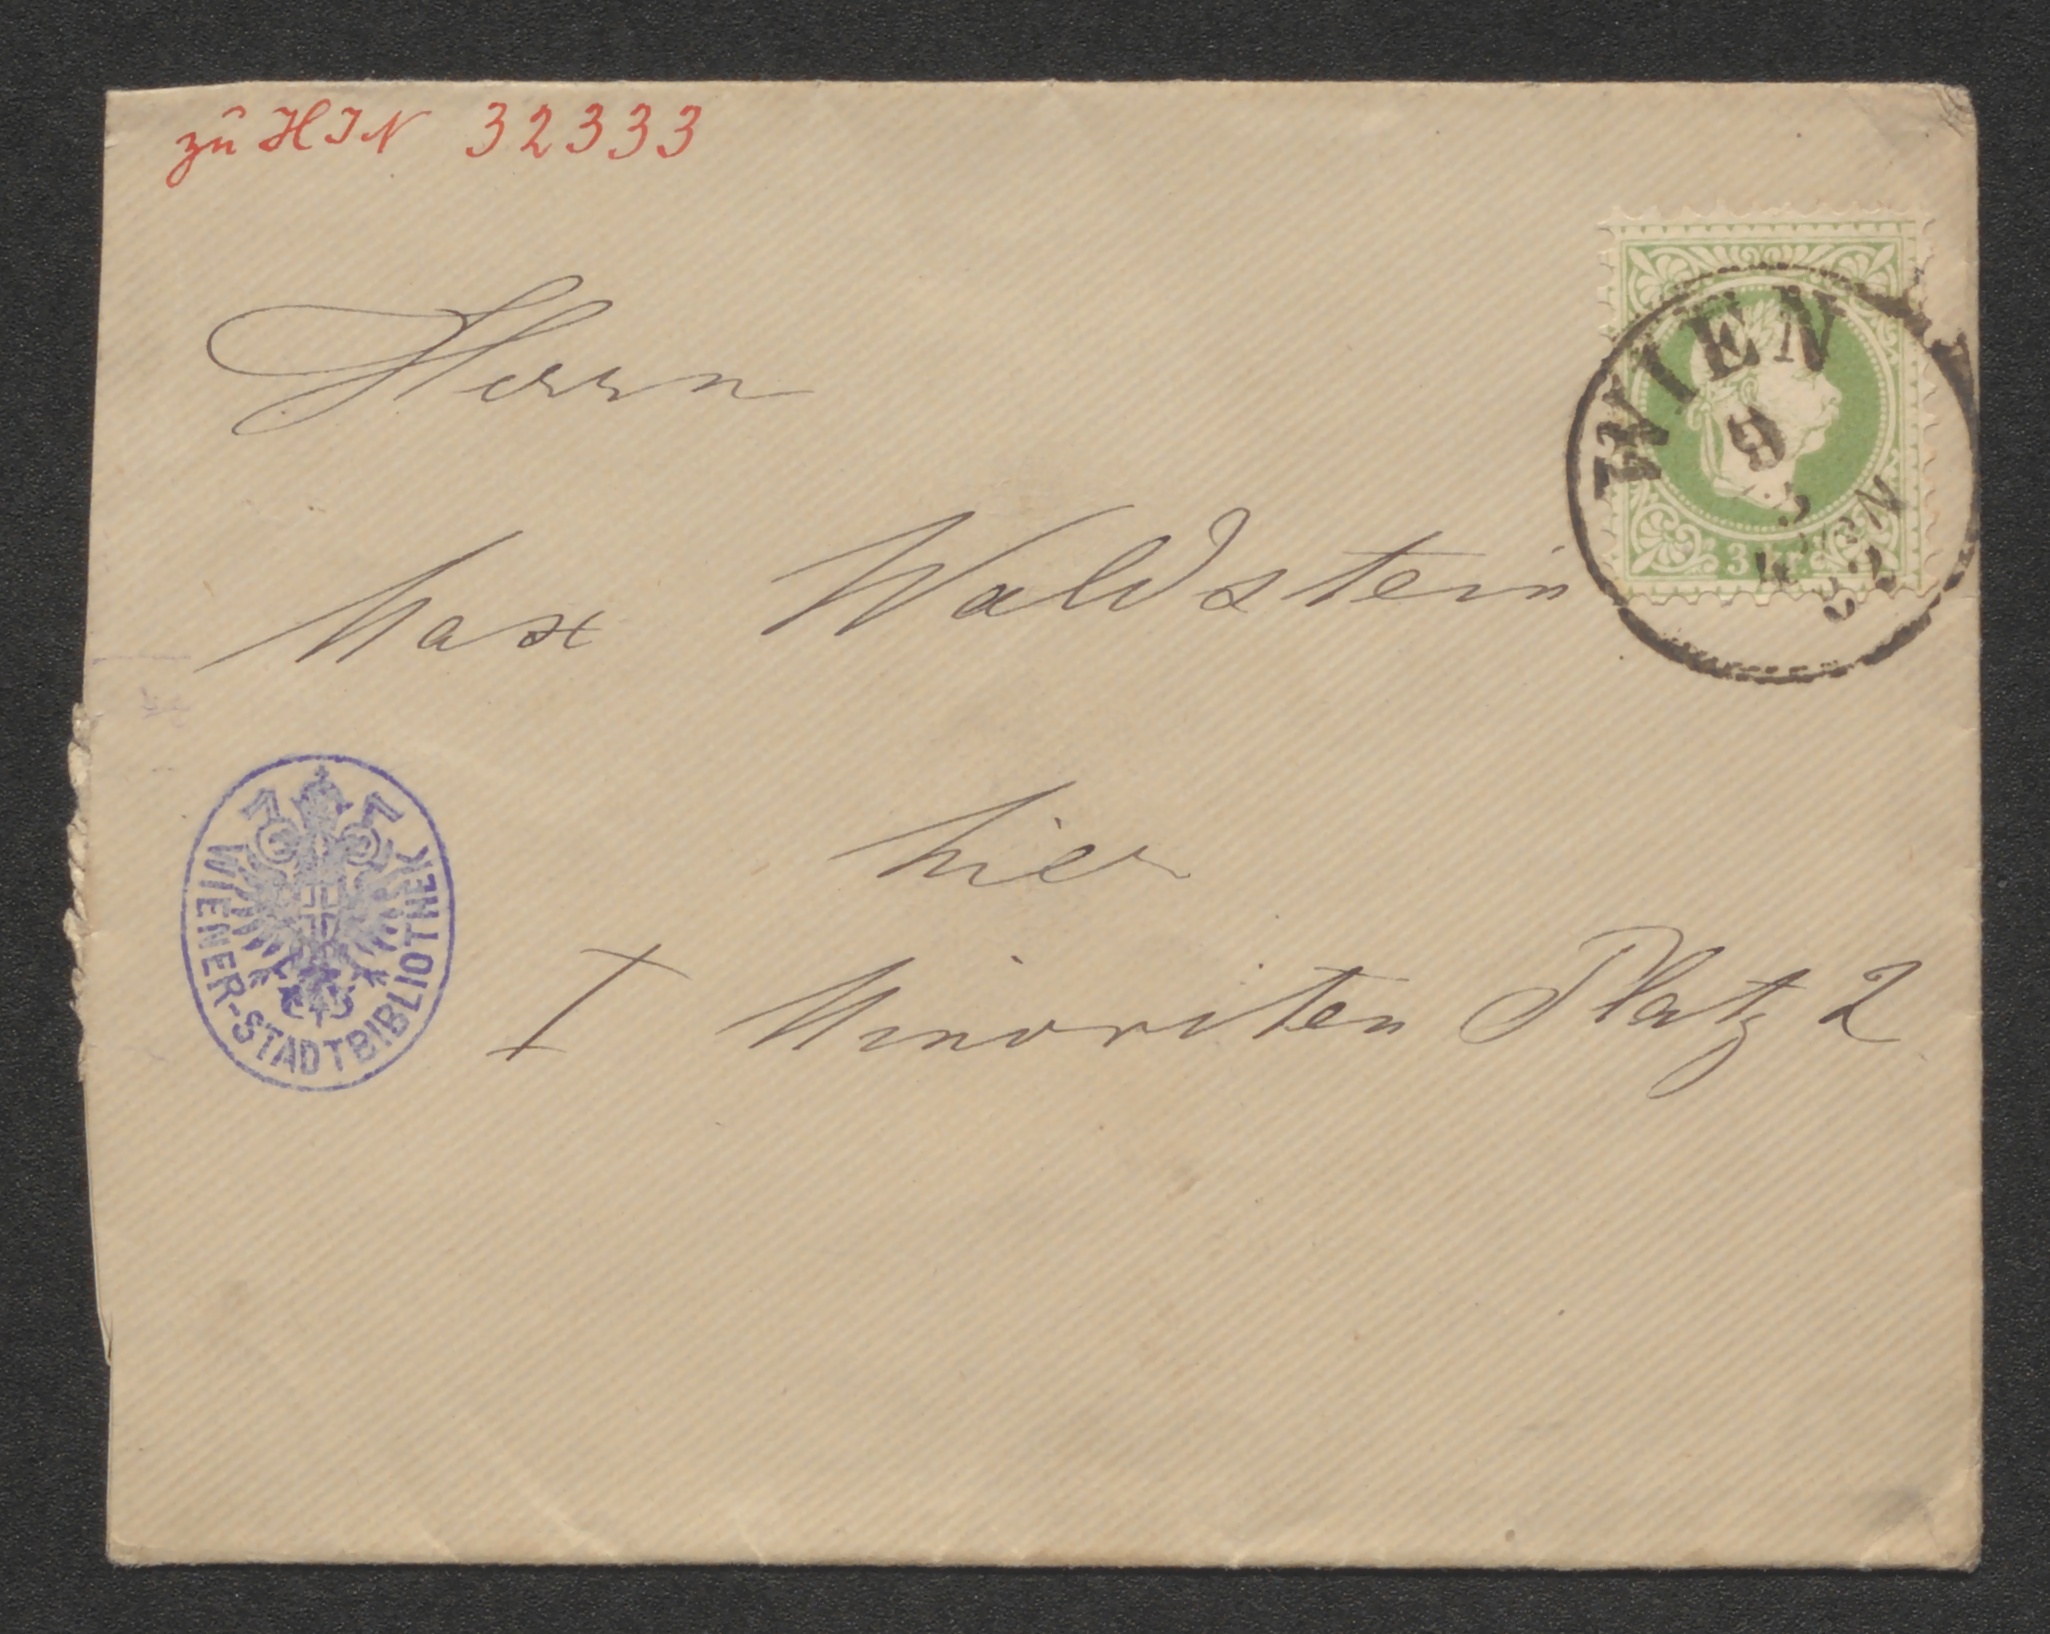 zu HIN 32333
Herrn
Max Waldstein
hier
I Minoriten Platz 2
WIEN
9
3 KR
WIENER-STADTBIBLIOTHEK